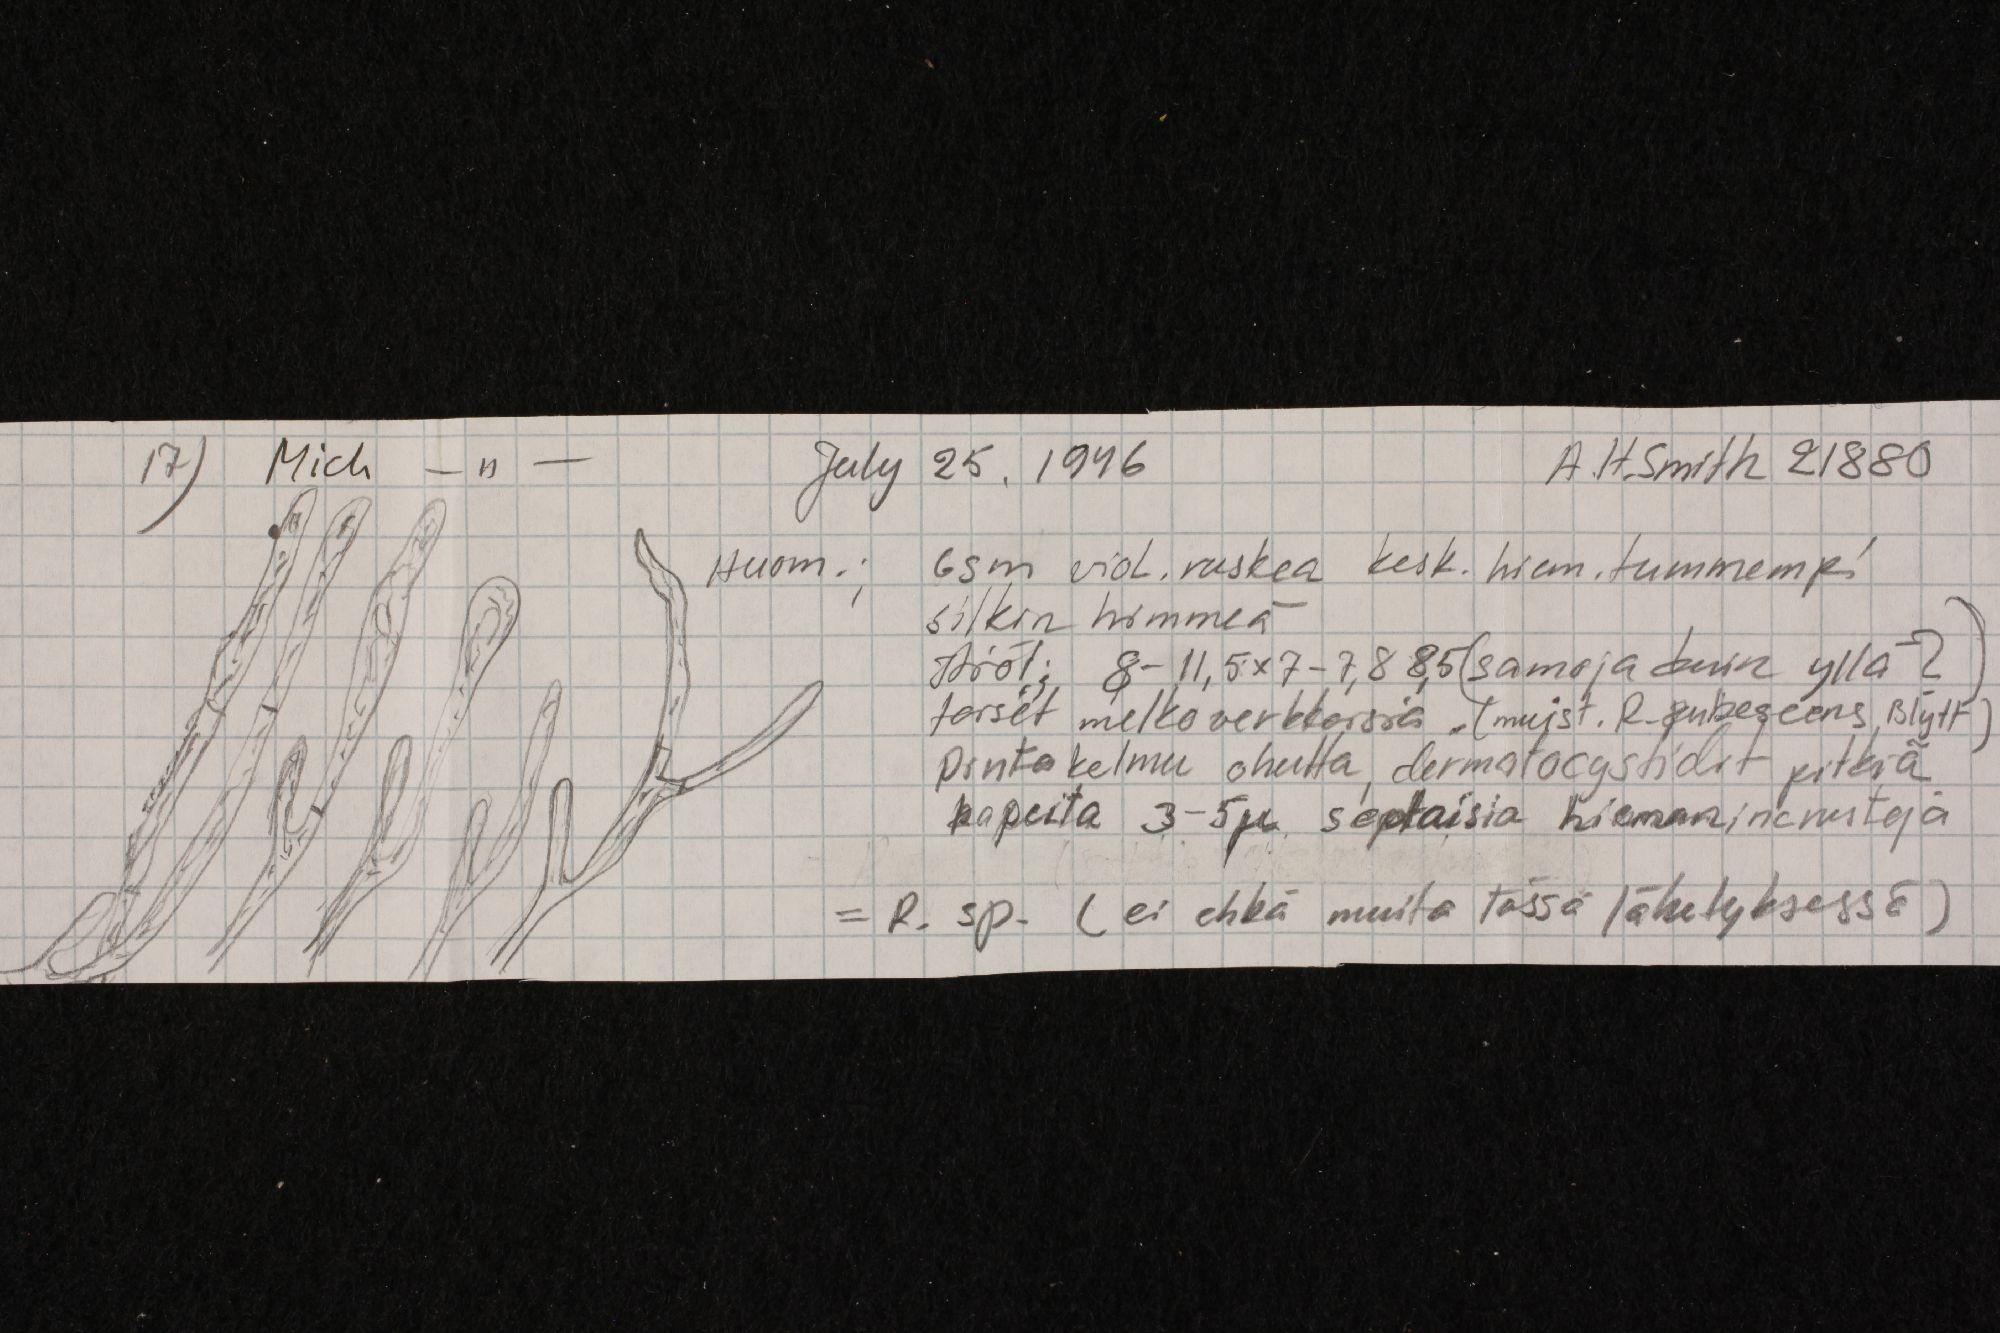 17) Mich — " — July 25. 1946 A.H.Smith 21880
Huom.: 6sm viol. ruskea kesk. hiem. tummempi
silkin himmeä
itiöt: 8–11,5 x 7–7,8 8,5 (samoja kuin yllä?)
melko verkkoisia. (muist. R. Blytt)
Pintakelmu ohutta, dermatocystidit pitkiä
kapeita 3–5µ septaisia hieman incrusteja
= R. sp. (ei ehkä muita tässä lähetyksessä)